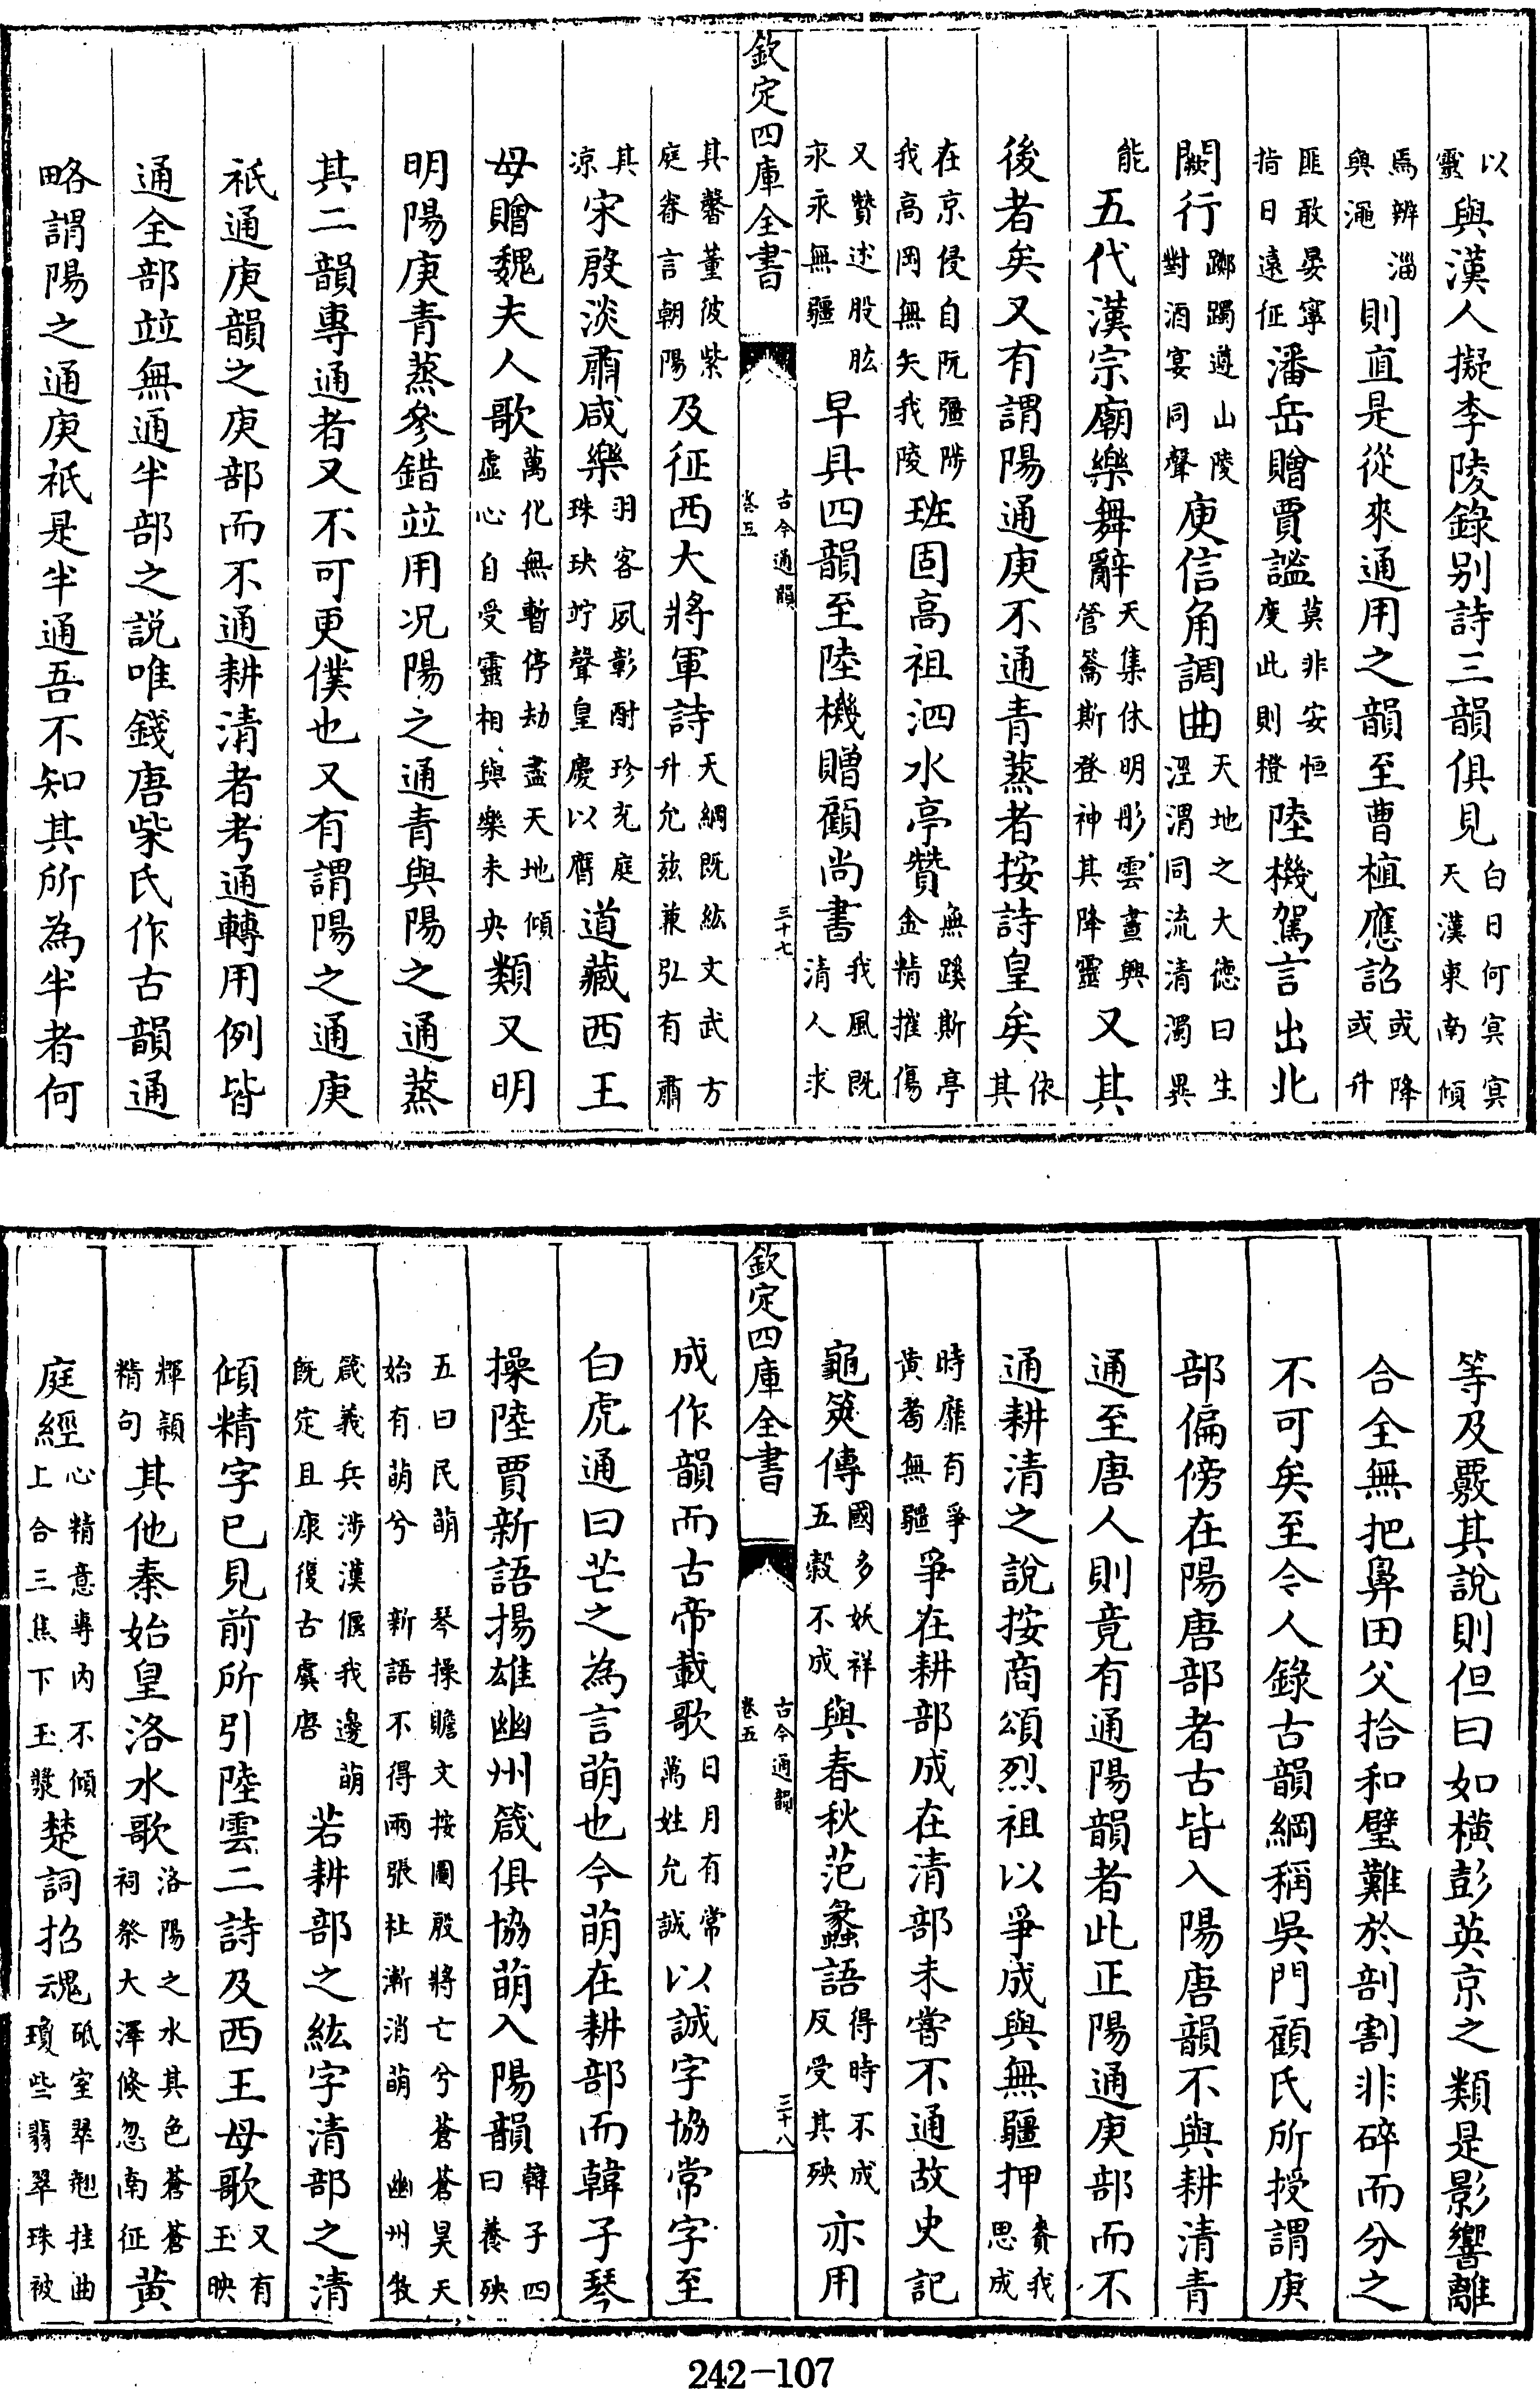 以靈與漢人擬李陵錄别詩三韻俱見白日何冥冥天漢東南傾
焉辨淄與澠則直是從來通用之韻至曹植應詔或降或升
匪敢晏寧指日遠征潘岳贈賈謐莫非安恒度此則橙陸機駕言出北
闕行躑躅遵山陵對酒宴同聲庾信角調曲天地之大徳曰生涇渭同流清濁異
能五代漢宗廟樂舞辭天集休明彤雲晝興管籥斯登神其降靈又其
後者矣又有謂陽通庚不通青蒸者按詩皇矣依其
在京侵自阮疆陟我高岡無矢我陵班固高祖泗水亭贊無蹊斯亭金精摧傷
又贊述股肱永永無疆早具四韻至陸機贈顧尚書我風既清人求
欽定四庫全書 古今通韻 卷五 三十七
其馨董彼紫庭眷言朝陽及征西大將軍詩天綱既紘文武方升允茲兼弘有肅
其涼宋殷淡肅咸樂羽客夙彰酎珍充庭珠玦竚聲皇慶以膺道藏西王
母贈魏夫人歌萬化無暫停劫盡天地傾虛心自受靈相與樂未央類又明
明陽庚青蒸參錯竝用况陽之通青與陽之通蒸
其二韻專通者又不可更僕也又有謂陽之通庚
祇通庚韻之庚部而不通耕清者考通轉用例皆
通全部竝無通半部之說唯錢唐柴氏作古韻通
略謂陽之通庚祇是半通吾不知其所為半者何
等及覈其說則但曰如橫彭英京之類是影響離
合全無把鼻田父拾和璧難於剖割非碎而分之
不可矣至今人錄古韻綱稱吳門顧氏所授謂庚
部偏傍在陽唐部者古皆入陽唐韻不與耕清青
通至唐人則竟有通陽韻者此正陽通庚部而不
通耕清之說按商頌烈祖以爭成與無疆押賚我思成
時靡有爭黃耇無疆爭在耕部成在清部未嘗不通故史記
龜筴傳國多妖祥五穀不成與春秋范蠡語得時不成反受其殃亦用
欽定四庫全書 古今通韻 卷五 三十八
成作韻而古帝載歌日月有常萬姓允誠以誠字協常字至
白虎通曰芒之為言萌也今萌在耕部而韓子琴
操陸賈新語揚雄幽州箴俱協萌入陽韻韓子四曰養殃
五曰民萌始有萌兮 琴操瞻文按圖殷將亡兮蒼蒼昊天新語不得兩張杜漸消萌 幽州牧
箴義兵涉漢偃我邊萌既定且康復古虞唐若耕部之紘字清部之清
傾精字已見前所引陸雲二詩及西王母歌又有玉映
輝頴精句其他秦始皇洛水歌洛陽之水其色蒼蒼祠祭大澤倐忽南征黃
庭經心精意專内不傾上合三焦下玉漿楚詞招魂砥室翠翹挂曲瓊些翡翠珠被
242-107